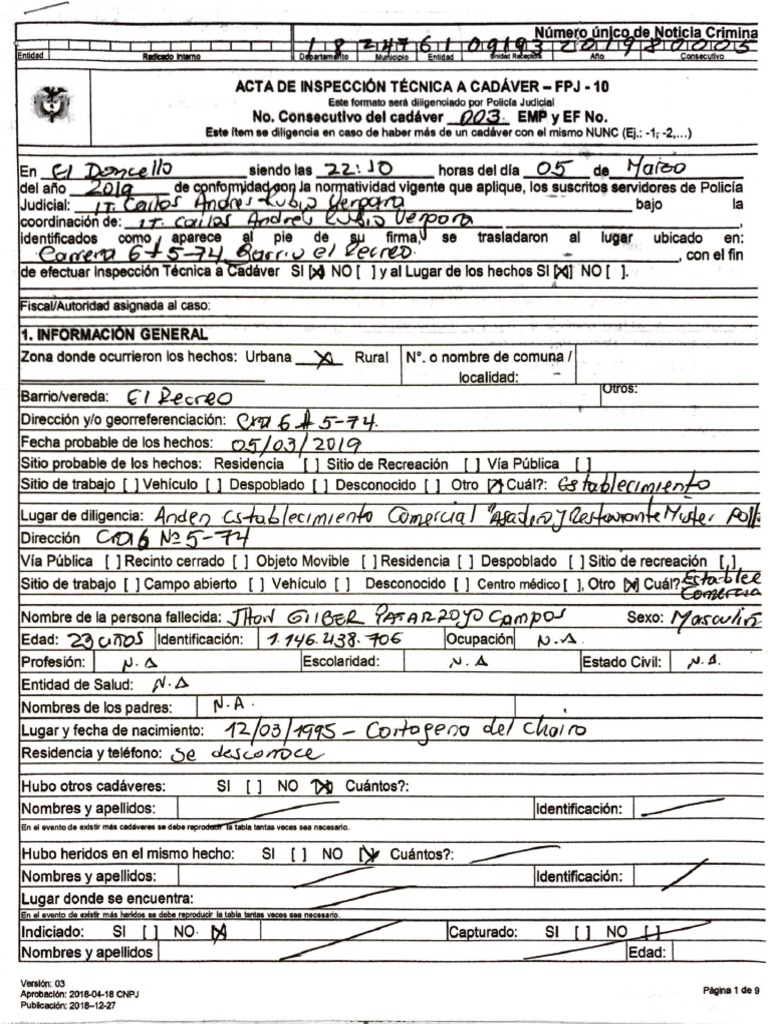 Número único de Noticia Crimina
1 8 2 4 7 6 1 0 9 1 9 3 2 0 1 9 8 0 0 0 5
Entidad Radicado Interno Departamento Municipio Entidad Unidad Receptora Año Consecutivo
ACTA DE INSPECCIÓN TÉCNICA A CADÁVER – FPJ - 10
Este formato será diligenciado por Policía Judicial
No. Consecutivo del cadáver 003. EMP y EF No.
Este ítem se diligencia en caso de haber más de un cadáver con el mismo NUNC (Ej.: -1, -2,...)
En El Doncello siendo las 22:10 horas del día 05 de Marzo
del año 2019 de conformidad con la normatividad vigente que aplique, los suscritos servidores de Policía
Judicial: IT. Carlos Andres Rubio Vergara bajo la
coordinación de: IT. Carlos Andres Rubio Vergara,
identificados como aparece al pie de su firma, se trasladaron al lugar ubicado en:
Carrera 6 # 5-74 Barrio el Recreo, con el fin
de efectuar Inspección Técnica a Cadáver SI [X] NO [ ] y al Lugar de los hechos SI [X] NO [ ].
Fiscal/Autoridad asignada al caso:
1. INFORMACIÓN GENERAL
Zona donde ocurrieron los hechos: Urbana X Rural N°. o nombre de comuna /
localidad: -
Barrio/vereda: El Recreo Otros:
Dirección y/o georreferenciación: Cra 6 # 5-74.
Fecha probable de los hechos: 05/03/2019
Sitio probable de los hechos: Residencia [ ] Sitio de Recreación [ ] Vía Pública [ ]
Sitio de trabajo [ ] Vehículo [ ] Despoblado [ ] Desconocido [ ] Otro [X] Cuál?: Establecimiento
Lugar de diligencia: Anden Establecimiento Comercial "Asadero y Restaurante Mister Poll
Dirección Cra 6 Nº 5-74
Vía Pública [ ] Recinto cerrado [ ] Objeto Movible [ ] Residencia [ ] Despoblado [ ] Sitio de recreación [ ]
Sitio de trabajo [ ] Campo abierto [ ] Vehículo [ ] Desconocido [ ] Centro médico [ ], Otro [X] Cuál? Establec
Comercia
Nombre de la persona fallecida: JHon GILBER PATARROYO Campos Sexo: Masculin
Edad: 23 años Identificación: 1.146.438.706 Ocupación N.A
Profesión: N.A Escolaridad: N.A Estado Civil: N.A.
Entidad de Salud: N.A
Nombres de los padres: N.A.
Lugar y fecha de nacimiento: 12/03/1995 - Cartagena del Chaira
Residencia y teléfono: se desconoce
Hubo otros cadáveres: SI [ ] NO [X] Cuántos?:
Nombres y apellidos: Identificación:
En el evento de existir más cadáveres se debe reproducir la tabla tantas veces sea necesario.
Hubo heridos en el mismo hecho: SI [ ] NO [X] Cuántos?:
Nombres y apellidos: Identificación:
Lugar donde se encuentra:
En el evento de existir más heridos se debe reproducir la tabla tantas veces sea necesario.
Indiciado: SI [ ] NO. [X] Capturado: SI [ ] NO [ ]
Nombres y apellidos Edad:
Versión: 03
Aprobación: 2018-04-18 CNPJ
Publicación: 2018-12-27
Página 1 de 9